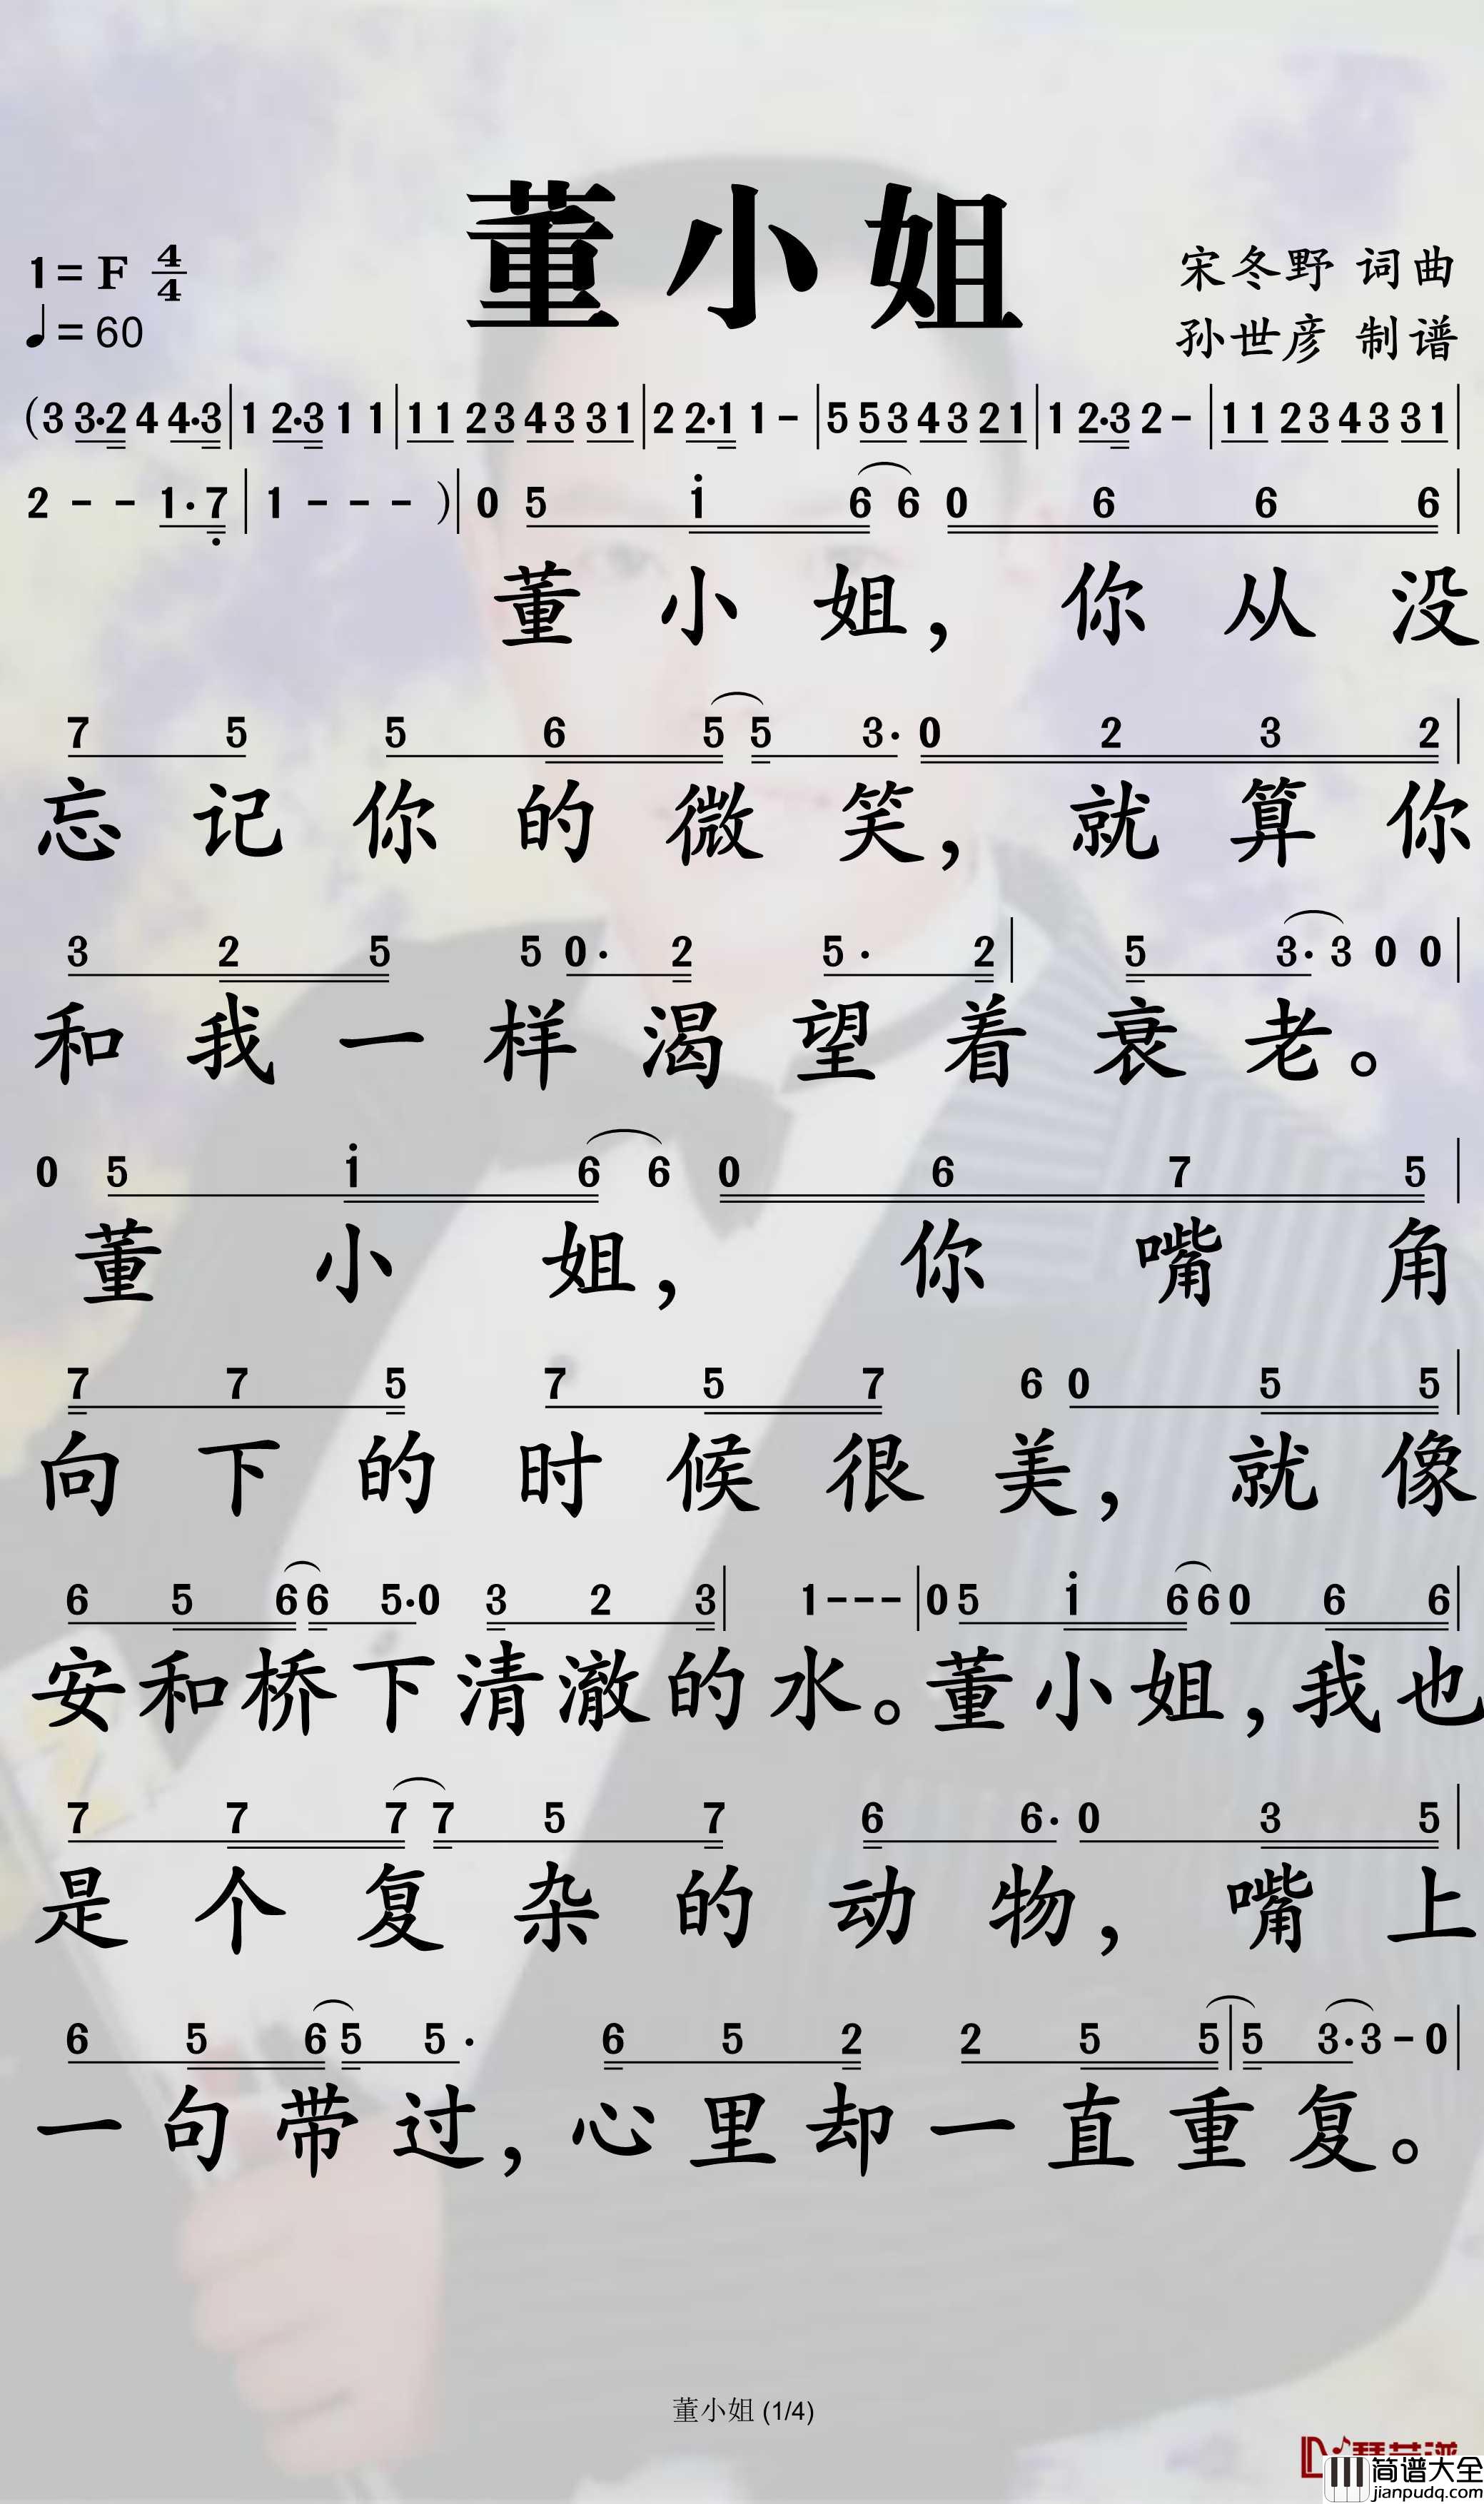 董小姐
1=F 4/4
♩=60
宋冬野 词曲
孙世彦 制谱
(3 3·2 4 4·3|1 2·3 1 1|1 1 2 3 4 3 3 1|2 2·1 1 -|5 5 3 4 3 2 1|1 2·3 2 -|1 1 2 3 4 3 3 1|
2 - - 1·7̣|1 - - -)|0 5 1̇ 6 6 0 6 6 6|
董小姐，你从没
7 5 5 6 5 5 3·0 2 3 2|
忘记你的微笑，就算你
3 2 5 5 0·2 5·2|5 3·3 0 0|
和我一样渴望着衰老。
0 5 1̇ 6 6 0 6 7 5|
董小姐，你嘴角
7 7 5 7 5 7 6 0 5 5|
向下的时候很美，就像
6 5 6 6 5·0 3 2 3|1 - - -|0 5 1̇ 6 6 0 6 6|
安和桥下清澈的水。董小姐，我也
7 7 7 7 5 7 6 6·0 3 5|
是个复杂的动物，嘴上
6 5 6 5 5· 6 5 2 2 5 5|5 3·3 - 0|
一句带过，心里却一直重复。
董小姐 (1/4)
简谱大全
jianpudq.com